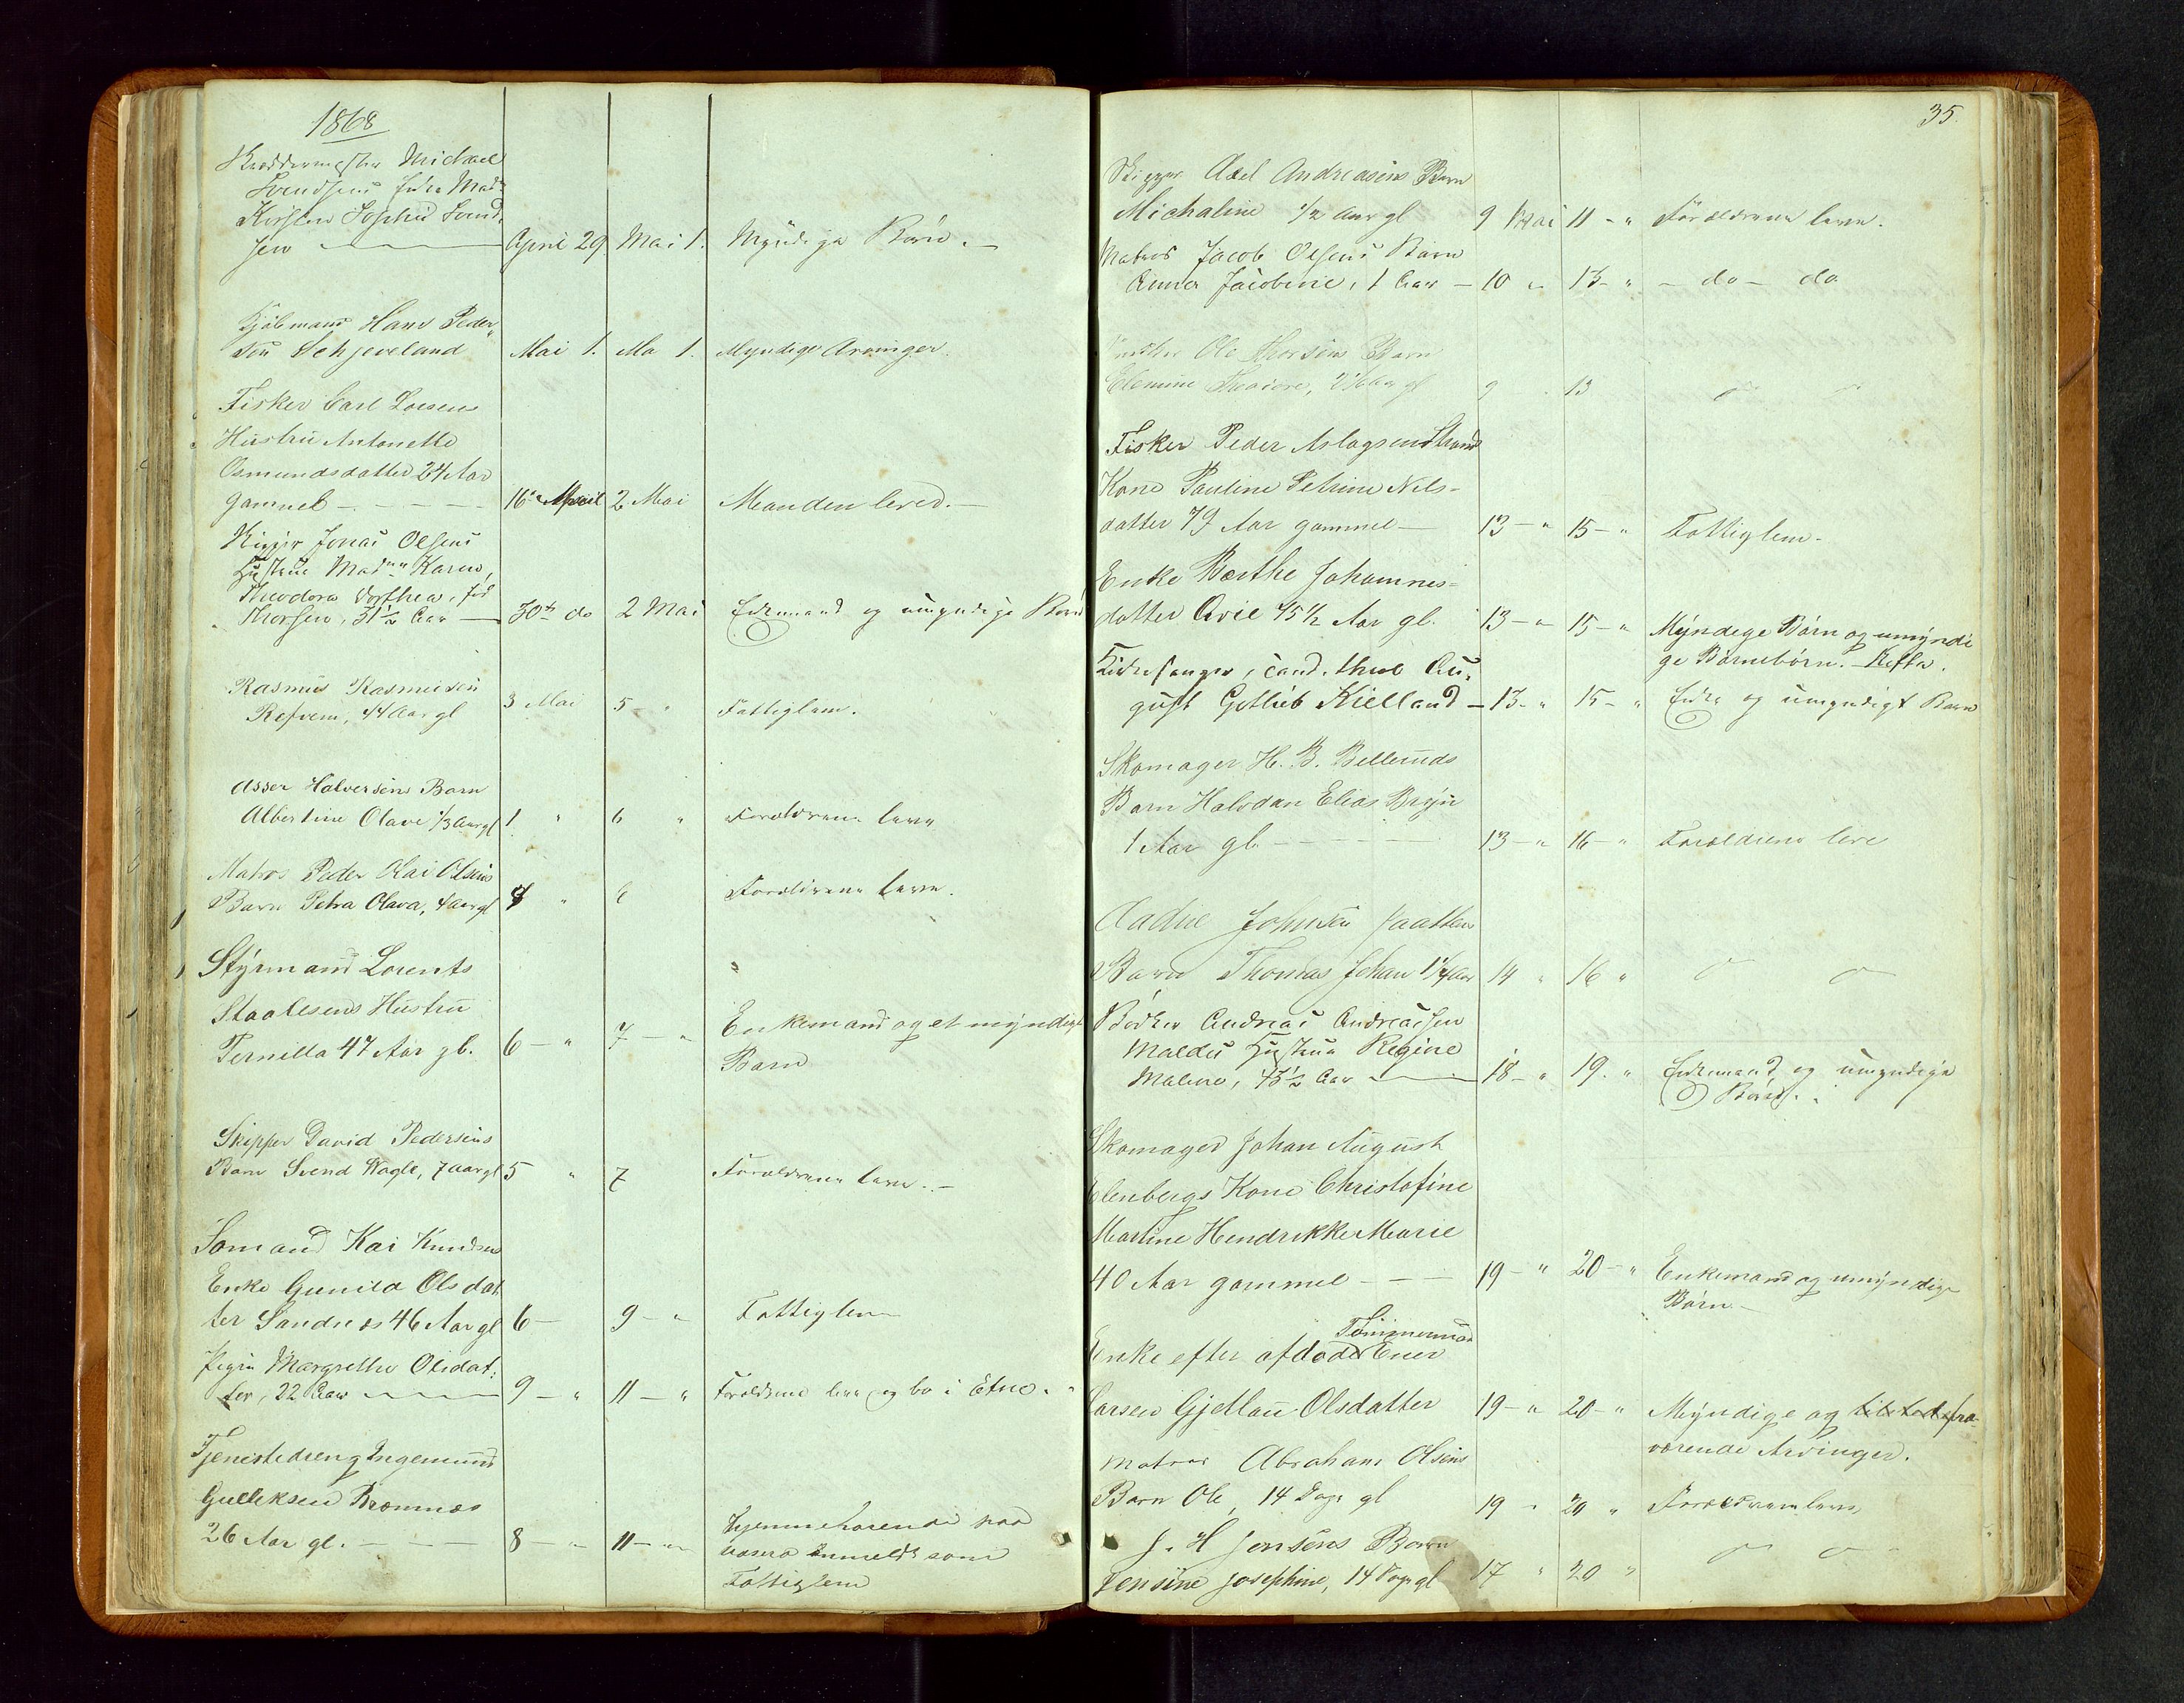 1868
Skræddermester Michael
Svendsens Enke Mad:
Kirsten Sophie Svend-
sen April 29 Mai 1. Myndige Børn.
Kjøbmand Hans Peder-
sen Schjeveland Mai 1. Ma 1. Myndige Arvinger.
Fisker Carl Loesens
Hustru Antonette
Osmundsdatter 24 Aar
gammel - - - - - 16de April 2 Mai Manden lever.
Skipper Jonas Olsens
Hustrue Madme Karen
Theodora Dorthea, fød
Thorsen, 31½ Aar 30te do 2 Mai Enkemand og umyndige Børn
Rasmus Rasmussen
Refvem, 44 Aar gl 3 Mai 5 " Fattiglem.
Asser Halversens Barn
Albertine Olave 1/3 Aar gl 1 " 6 " Forældrene leve
Matros Peder Olai Olsens
Barn Petra Olava, 4 Aar gl 4 " 6 Forældrene leve.
Styrmand Lorents
Staalesens Hustru
Pernilla 47 Aar gl. 6 - " 7 - " Enkemand og et myndigt
Barn
Skipper David Pedersens
Barn Svend Wagle, 7 aar gl 5 " 7 Forældrene leve.
Sømand Kai Knudsens
Enke Gunild Olsdat
ter Sandnes 46 Aar gl 6 - 9 - " Fattiglem
Pigen Margrethe Olsdat:
ter, 22 Aar 9 - " 11 - " Forældrene leve og bo i Etne.
Tjenistedreng Ingemund
Gulleksen Bromnes
26 Aar gl. - - - 8 - " 11 - " hjemmehørende paa
anmeldt som
Fattiglem
35.
Skipper Axel Andreasens Barn
Michaline ½ Aar gl 9 Mai 11 - " Forældrene leve.
Matros Jacob Olsens Barn
Anna Jacobine, 1 Aar - 10 " 13 - " - do - do
Ole Thorsens Barn
Elemine Theodore, 2½ Aar gl 9 . 13 " "
Fisker Peder Aslagsen Strands
Kone Pauline Petrine Nels-
datter 79 Aar gammel - 13 - " 15 - " Fattiglem.
Enke Berthe Johannes-
datter Qvie 75½ Aar gl. 13 - " 15 - " Myndige Børn og umyndi
ge Børnebørn.
Kirkesanger, cand. theol Au-
gust Gotlieb Kielland - 13 - " 15 - " Enke og umyndigt Barn
Skomager H. B. Bellerruds
Barn Halvdan Elias Bryn
1 Aar gl. - - - - 13 - " 16 - " Forældrene leve
Aadne Johnsen Jaattens
Barn Thomas Johan 1¼ Aar 14 " 16 " " "
Bødker Andreas Andreassen
Maldes Hustrue Regine
Malene, 43½ Aar 18 - " 19. " Enkemand og umyndige
Børn.
Skomager Johan August
Elenbergs Kone Christofine
Martine Hendrikke Marie
40 Aar gammel - - - 19 - " 20 - " Enkemand og umyndige
Børn
Tømmermand
Enke efter afdøde Ener
Larsen Gjetlau Olsdatter 19 - " 20 - " Myndige og fra-
værende Arvinger.
Matros Abraham Olsens
Barn Ole, 14 Dage gl 19 " 20 " Forældrene leve,
J. H Jensens Barn
Jensine Josephine, 14 Dage gl 17 " 20 " " "